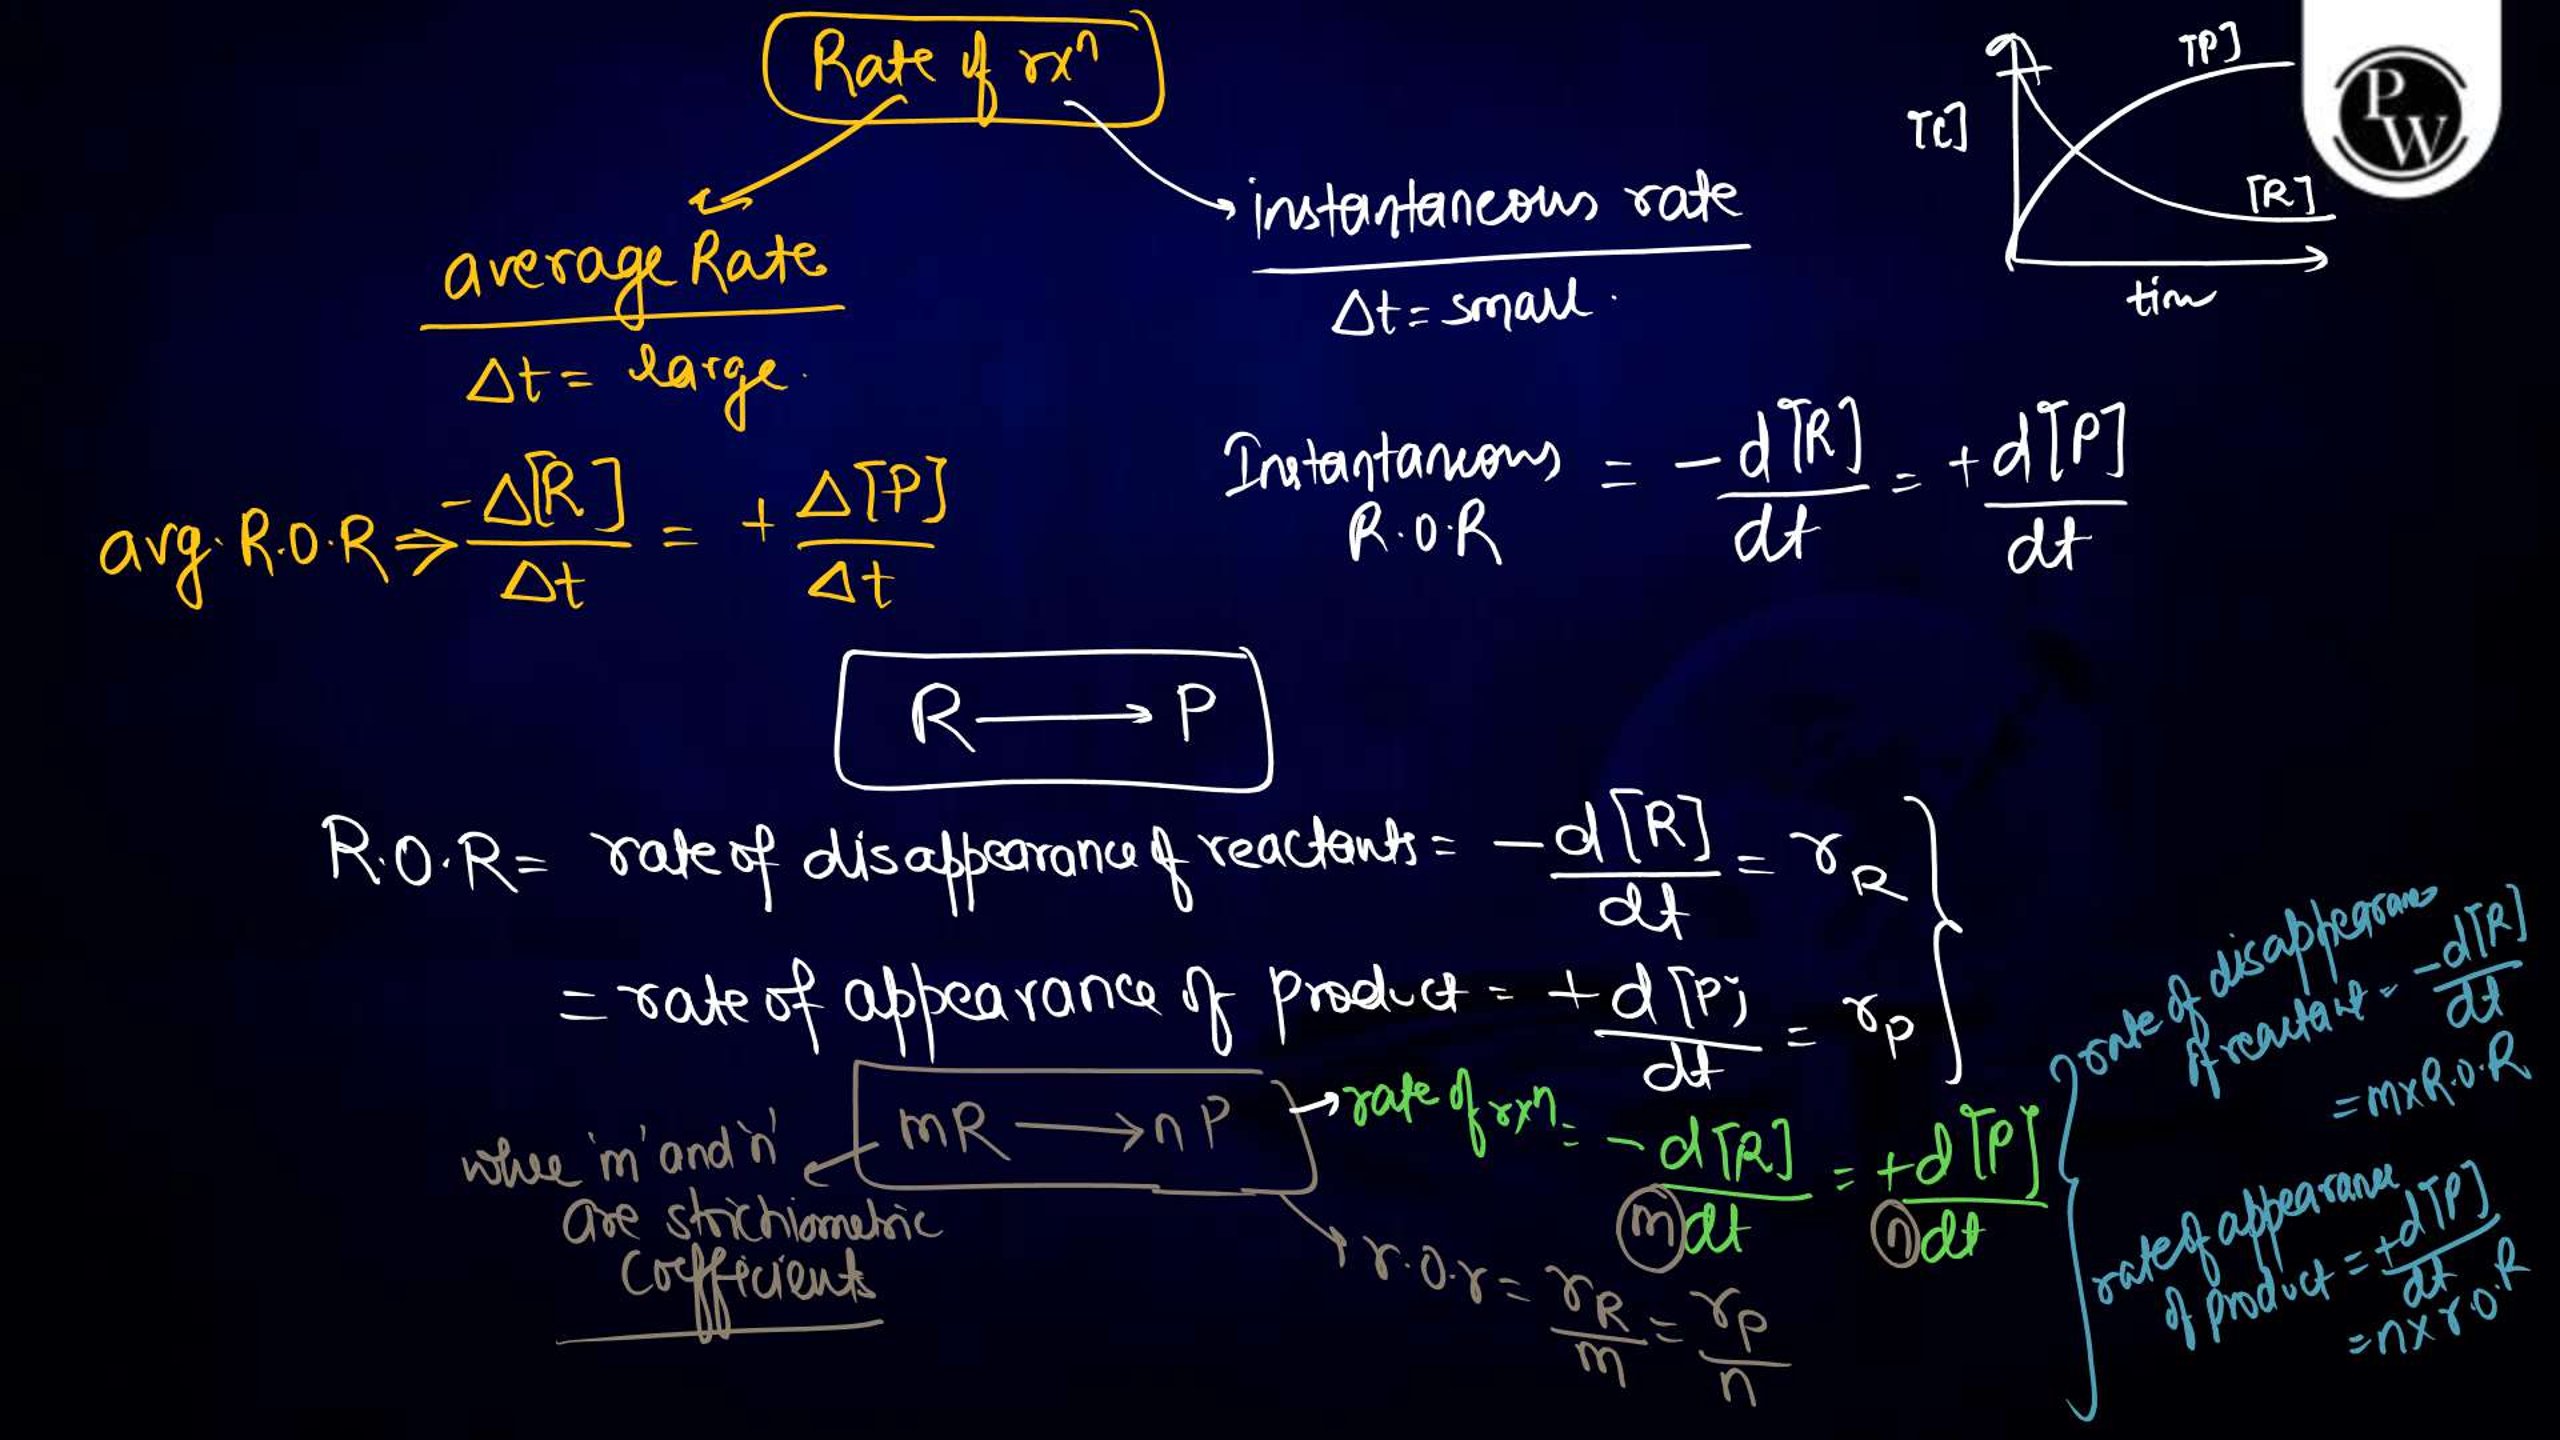 Rate of rxⁿ
average Rate
Δt = large.
avg. R.O.R ⇒ -Δ[R]/Δt = + Δ[P]/Δt
instantaneous rate
Δt = small.
Instantaneous R.O.R = - d[R]/dt = + d[P]/dt
[C]
[P]
[R]
tim
PW
R ⟶ P
R.O.R = rate of disappearance of reactants = - d[R]/dt = rR
= rate of appearance of product = + d[P]/dt = rP
mR ⟶ nP
where 'm' and 'n'
are stoichiometric
coefficients
→ rate of rxⁿ = - d[R]/mdt = + d[P]/ndt
r.o.r = rR/m = rP/n
rate of disappearance
of reactant = -d[R]/dt
= m x R.O.R
rate of appearance
of product = +d[P]/dt
= n x r.o.R